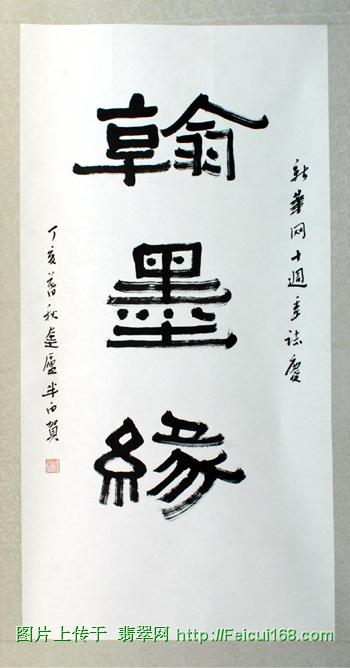 新華网十週年誌慶
翰墨緣
丁亥暮秋廬半白賀
图片上传于 翡翠网 http://Feicui168.com